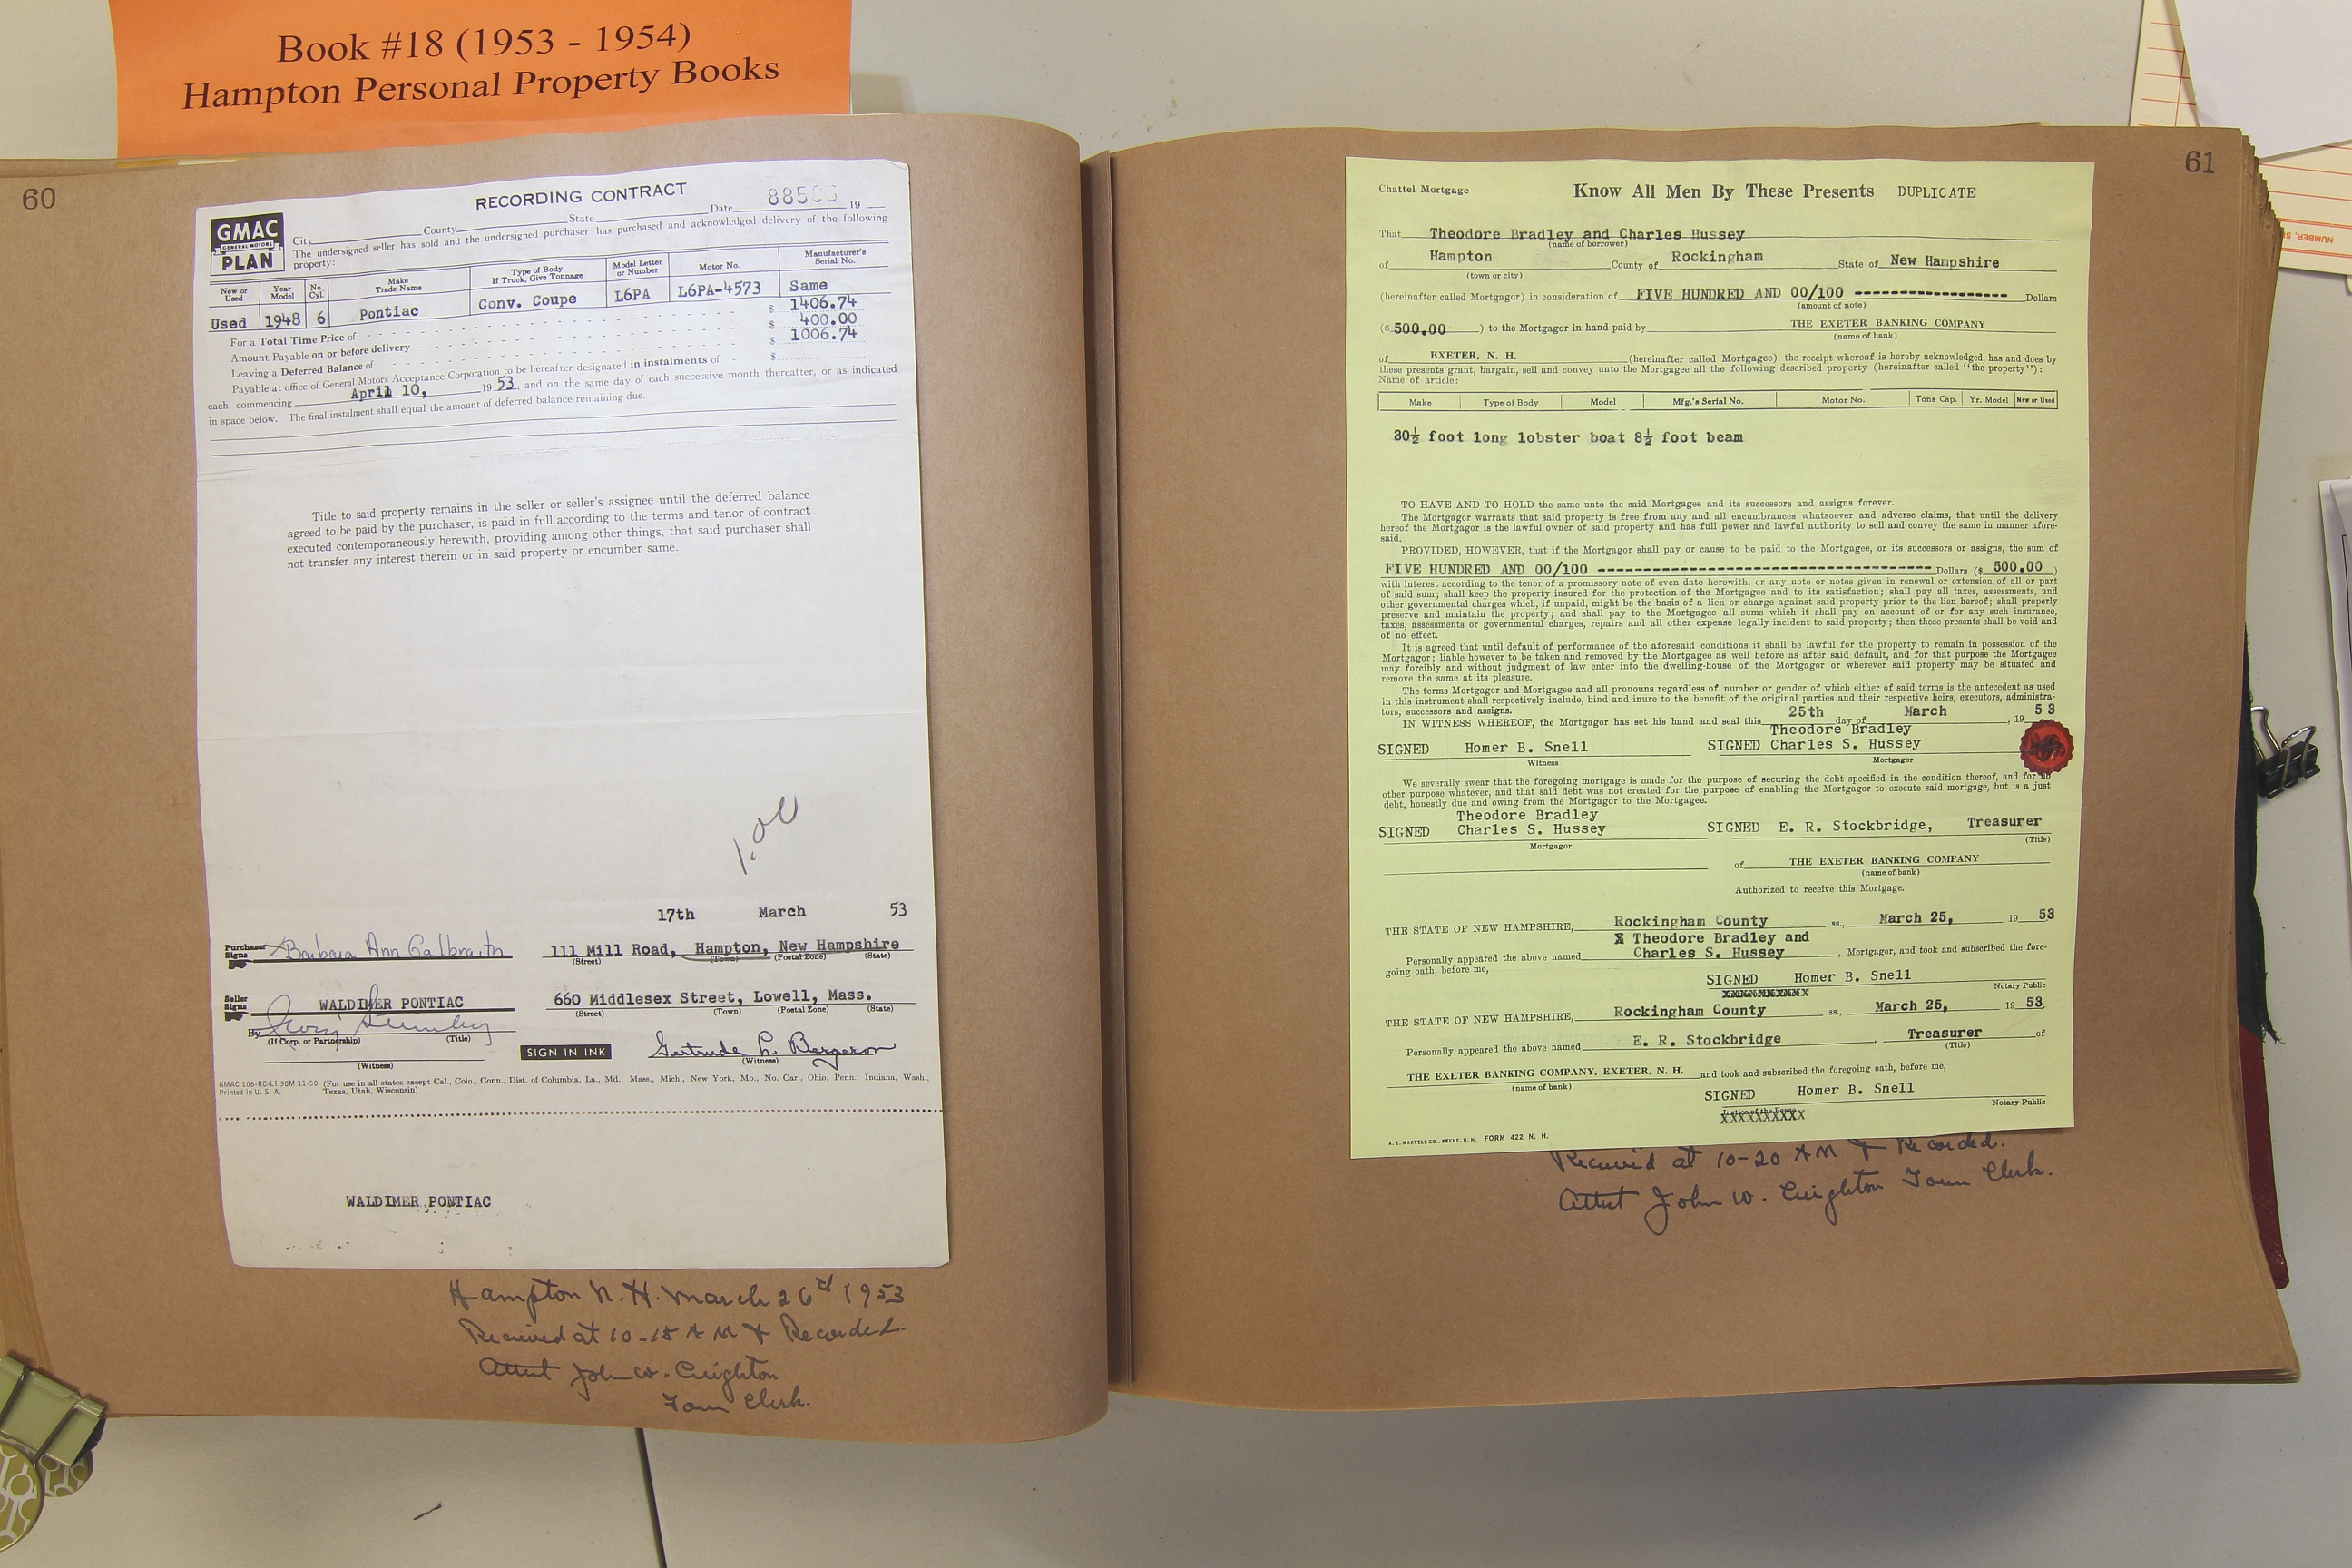 Book #18 (1953 - 1954)
Hampton Personal Property Books
60
RECORDING CONTRACT
GMAC
GENERAL MOTORS
PLAN
City County State Date 885 19
The undersigned seller has sold and the undersigned purchaser has purchased and acknowledged delivery of the following
property:
New or Used Year Model No. Cyl. Make Trade Name Type of Body If Truck, Give Tonnage Model Letter or Number Motor No. Manufacturer's Serial No.
Used 1948 6 Pontiac Conv. Coupe L6PA L6PA-4573 Same
For a Total Time Price of $ 1406.74
Amount Payable on or before delivery $ 400.00
Leaving a Deferred Balance of $ 1006.74
Payable at office of General Motors Acceptance Corporation to be hereafter designated in instalments of $
each, commencing April 10, 19 53, and on the same day of each successive month thereafter, or as indicated
in space below. The final instalment shall equal the amount of deferred balance remaining due.
Title to said property remains in the seller or seller's assignee until the deferred balance
agreed to be paid by the purchaser, is paid in full according to the terms and tenor of contract
executed contemporaneously herewith, providing among other things, that said purchaser shall
not transfer any interest therein or in said property or encumber same.
1.00
17th March 53
Purchaser Signs Barbara Ann Galbraith 111 Mill Road, Hampton, New Hampshire
(Street) (Town) (Postal Zone) (State)
Seller Signs WALDIMER PONTIAC 660 Middlesex Street, Lowell, Mass.
(Street) (Town) (Postal Zone) (State)
By
(If Corp. or Partnership) (Title)
SIGN IN INK Gertrude L. Bergeron
(Witness) (Witness)
GMAC 106-RC-LI 30M 11-50 (For use in all states except Cal., Colo., Conn., Dist. of Columbia, La., Md., Mass., Mich., New York, Mo., No. Car., Ohio, Penn., Indiana, Wash.,
Printed in U. S. A. Texas, Utah, Wisconsin)
WALDIMER PONTIAC
Hampton N. H. March 26th 1953
Received at 10-15 AM & Recorded.
Attest John W. Creighton
Town Clerk.
61
Chattel Mortgage Know All Men By These Presents DUPLICATE
That Theodore Bradley and Charles Hussey
(name of borrower)
of Hampton County of Rockingham State of New Hampshire
(town or city)
(hereinafter called Mortgagor) in consideration of FIVE HUNDRED AND 00/100 ------------------- Dollars
(amount of note)
($ 500.00 ) to the Mortgagor in hand paid by THE EXETER BANKING COMPANY
(name of bank)
of EXETER, N. H. (hereinafter called Mortgagee) the receipt whereof is hereby acknowledged, has and does by
these presents grant, bargain, sell and convey unto the Mortgagee all the following described property (hereinafter called "the property"):
Name of article:
Make Type of Body Model Mfg.'s Serial No. Motor No. Tons Cap. Yr. Model New or Used
30½ foot long lobster boat 8½ foot beam
TO HAVE AND TO HOLD the same unto the said Mortgagee and its successors and assigns forever.
The Mortgagor warrants that said property is free from any and all encumbrances whatsoever and adverse claims, that until the delivery
hereof the Mortgagor is the lawful owner of said property and has full power and lawful authority to sell and convey the same in manner afore-
said.
PROVIDED, HOWEVER, that if the Mortgagor shall pay or cause to be paid to the Mortgagee, or its successors or assigns, the sum of
FIVE HUNDRED AND 00/100 ---------------------------------- Dollars ($ 500.00 )
with interest according to the tenor of a promissory note of even date herewith, or any note or notes given in renewal or extension of all or part
of said sum; shall keep the property insured for the protection of the Mortgagee and to its satisfaction; shall pay all taxes, assessments, and
other governmental charges which, if unpaid, might be the basis of a lien or charge against said property prior to the lien hereof; shall properly
preserve and maintain the property; and shall pay to the Mortgagee all sums which it shall pay on account of or for any such insurance,
taxes, assessments or governmental charges, repairs and all other expense legally incident to said property; then these presents shall be void and
of no effect.
It is agreed that until default of performance of the aforesaid conditions it shall be lawful for the property to remain in possession of the
Mortgagor; liable however to be taken and removed by the Mortgagee as well before as after said default, and for that purpose the Mortgagee
may forcibly and without judgment of law enter into the dwelling-house of the Mortgagor or wherever said property may be situated and
remove the same at its pleasure.
The terms Mortgagor and Mortgagee and all pronouns regardless of number or gender of which either of said terms is the antecedent as used
in this instrument shall respectively include, bind and inure to the benefit of the original parties and their respective heirs, executors, administra-
tors, successors and assigns.
IN WITNESS WHEREOF, the Mortgagor has set his hand and seal this 25th day of March , 19 53
Theodore Bradley
SIGNED Homer B. Snell SIGNED Charles S. Hussey
Witness Mortgagor
We severally swear that the foregoing mortgage is made for the purpose of securing the debt specified in the condition thereof, and for no
other purpose whatever, and that said debt was not created for the purpose of enabling the Mortgagor to execute said mortgage, but is a just
debt, honestly due and owing from the Mortgagor to the Mortgagee.
Theodore Bradley
SIGNED Charles S. Hussey SIGNED E. R. Stockbridge, Treasurer
Mortgagor (Title)
of THE EXETER BANKING COMPANY
(name of bank)
Authorized to receive this Mortgage.
THE STATE OF NEW HAMPSHIRE, Rockingham County ss., March 25, 19 53
X Theodore Bradley and
Personally appeared the above named Charles S. Hussey , Mortgagor, and took and subscribed the fore-
going oath, before me,
SIGNED Homer B. Snell
Notary Public
THE STATE OF NEW HAMPSHIRE, Rockingham County ss., March 25, 19 53
Personally appeared the above named E. R. Stockbridge , Treasurer of
(Title)
THE EXETER BANKING COMPANY, EXETER, N. H. and took and subscribed the foregoing oath, before me,
(name of bank)
SIGNED Homer B. Snell
Justice of the Peace Notary Public
XXXXXXXXX
A. E. MARTELL CO., KEENE, N. H. FORM 422 N. H.
Received at 10-20 AM & Recorded.
Attest John W. Creighton Town Clerk.
NUMBER, S